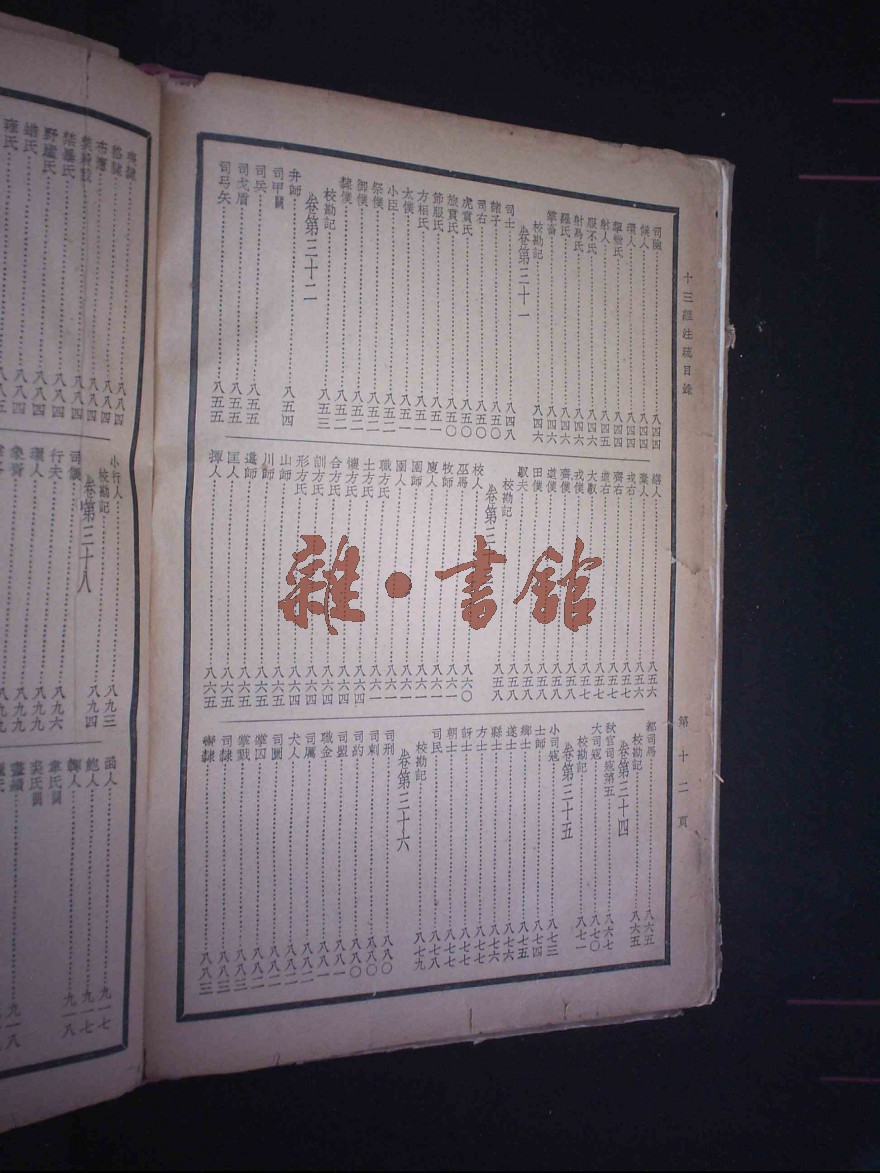 十三經注疏目錄
第十二頁
司險 八四四
候人 八四四
環人 八四四
挈壺氏 八四四
射人 八四五
服不氏 八四六
射鳥氏 八四六
羅氏 八四六
掌畜 八四六
校勘記 八四六
卷第三十一
司士 八四八
諸子 八五〇
司右 八五〇
虎賁氏 八五〇
旅賁氏 八五〇
節服氏 八五一
方相氏 八五一
太僕 八五一
小臣 八五二
祭僕 八五二
御僕 八五二
隸僕 八五二
校勘記 八五三
卷第三十二
弁師 八五四
司甲闕
司兵 八五五
司戈盾 八五五
司弓矢 八五五
繕人 八五六
槀人 八五六
戎右 八五七
齊右 八五七
道右 八五七
大馭 八五七
戎僕 八五八
齊僕 八五八
道僕 八五八
田僕 八五八
馭夫 八五八
校勘記 八五八
卷第三
校人 八六〇
巫馬
牧師 八六一
廋人 八六一
圉師 八六一
圉人 八六一
職方氏 八六一
土方氏 八六四
懷方氏 八六四
合方氏 八六四
訓方氏 八六四
形方氏 八六四
山師 八六五
川師 八六五
邍師 八六五
匡人 八六五
撢人 八六五
都司馬 八六五
校勘記 八六五
卷第三十四
秋官司寇第五 八六七
大司寇 八七〇
校勘記 八七一
卷第三十五
小司寇 八七三
士師 八七四
鄉士 八七五
遂士 八七六
縣士 八七六
方士 八七七
訝士 八七七
朝士 八七七
司民 八七八
校勘記 八七九
卷第三十六
司刑 八八〇
司刺 八八〇
司約 八八〇
司盟 八八一
職金 八八一
司厲 八八二
犬人 八八二
司圜 八八二
掌囚 八八二
掌戮 八八三
司隸 八八三
罪隸 八八三
八八四
布憲 八八四
禁殺戮 八八四
禁暴氏 八八四
野廬氏 八八四
蜡氏 八八四
雍氏 八八五
小行人 八九三
校勘記 八九四
卷第三十八
司儀
行夫 八九六
環人 八九九
象胥 八九九
函人 九一七
鮑人 九一七
韗人 九一八
韋氏闕
裘氏闕
畫繢 九一八
雜·書館